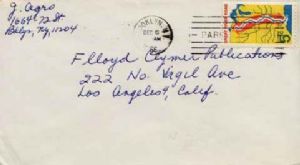 J. Agro
1664 72 St
Bklyn, Ny, 11204
BROOKLYN, N.Y.
DEC 6
AM
PARK
5c
Flloyd Clymer Publications
222 No. Virgil Ave
Los Angeles, Calif.